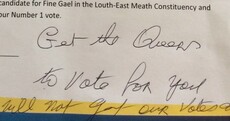 candidate for Fine Gael in the Louth-East Meath Constituency and
our Number 1 vote.
Get the Queers
to Vote for you
will not get our Votes